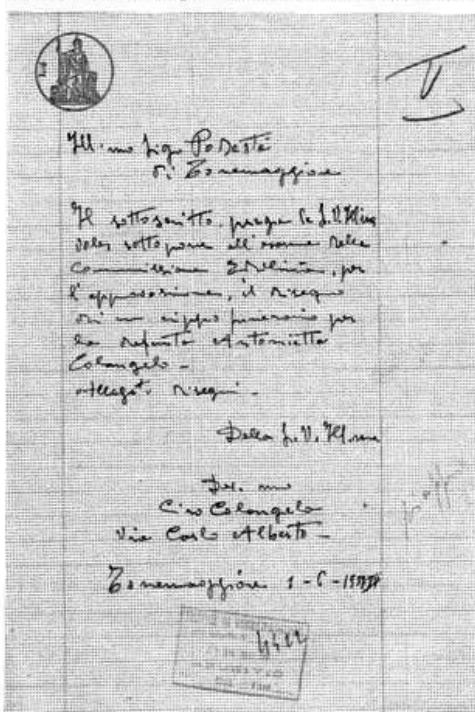 V
Ill.mo Sigr Podestà
di Torremaggiore
Il sottoscritto prega la S.V. Ill.ma
voler sottoporre all'esame della
Commissione Edilizia, per
l'approvazione, il disegno
di un cippo funerario per
la defunta Antonietta
Colangelo -
Allegati disegni -
Della S.V. Ill.ma
Dev.mo
Ciro Colangelo
Via Carlo Alberto -
Torremaggiore 1-6-
4422